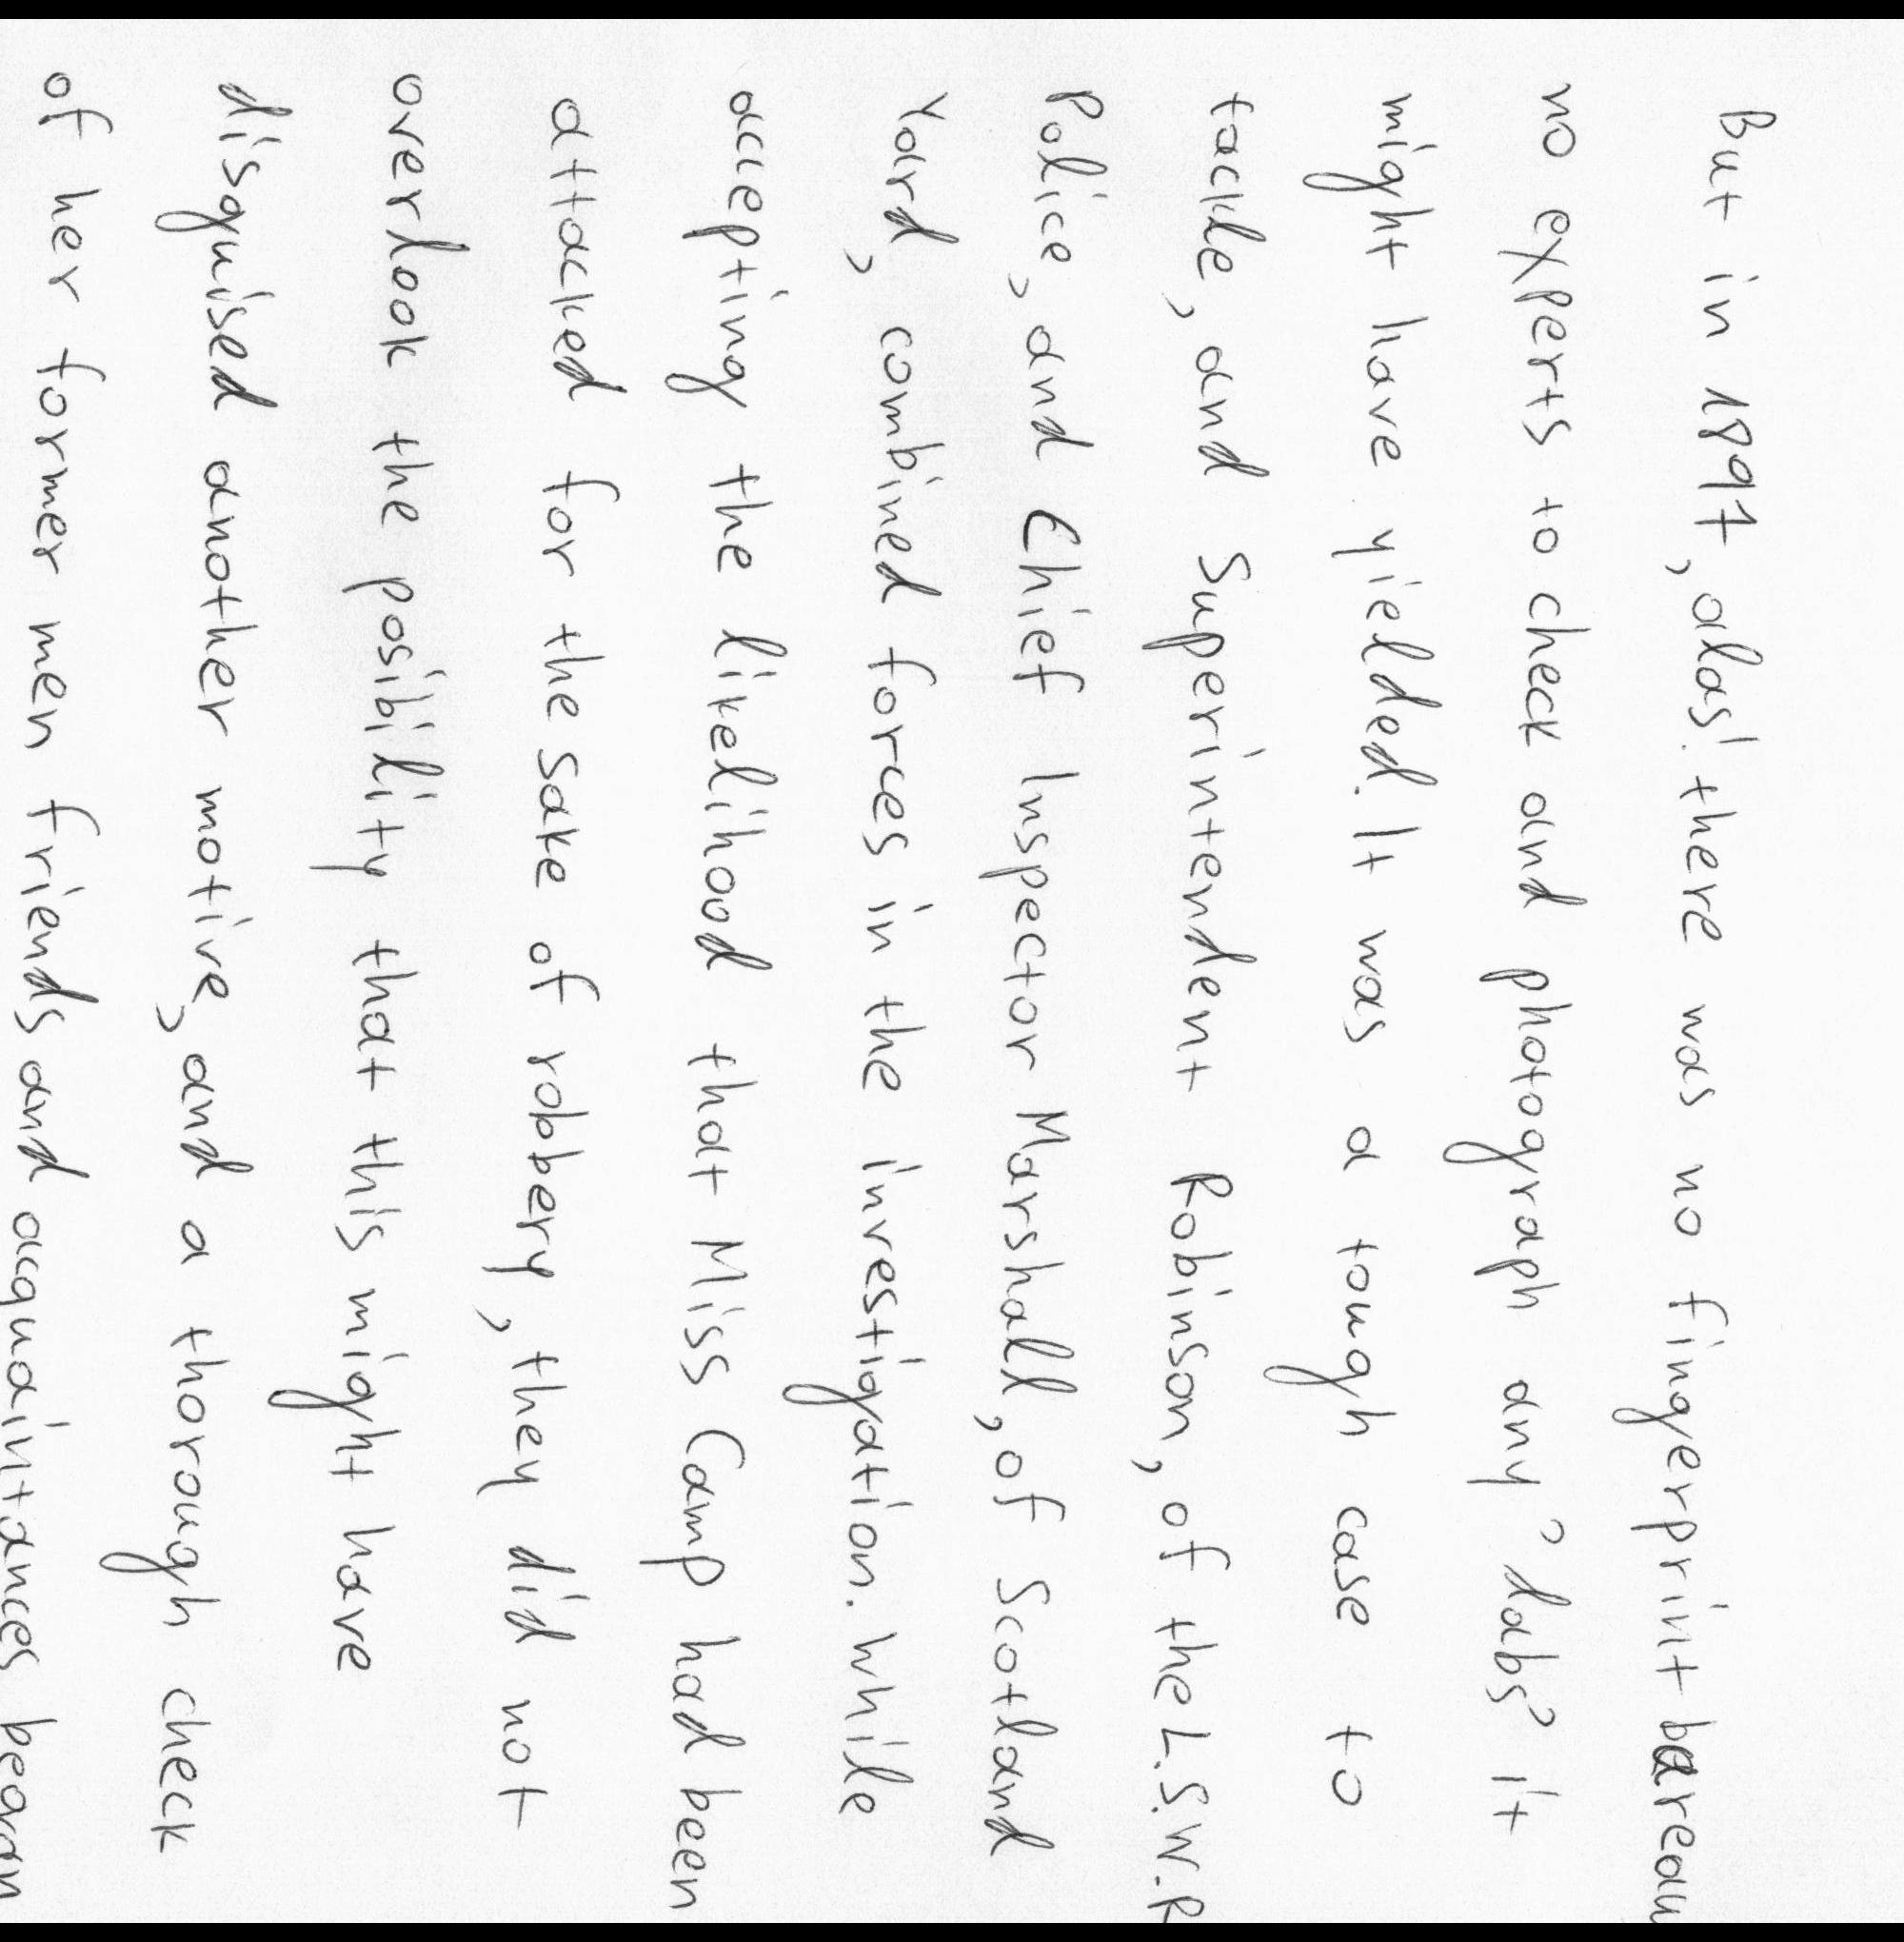 But in 1897, alas! there was no fingerprint bareau
no experts to check and photograph any ? dabs? it
might have yielded. It was a tough case to
tackle, and Superintendent Robinson, of the L.S.W.R
Police, and Chief Inspector Marshall, of Scotland
Yard, combined forces in the investigation. While
accepting the likelihood that Miss Camp had been
attacked for the sake of robbery, they did not
overlook the posibility that this might have
disguised another motive, and a thorough check
of her former men friends and acquaintances began